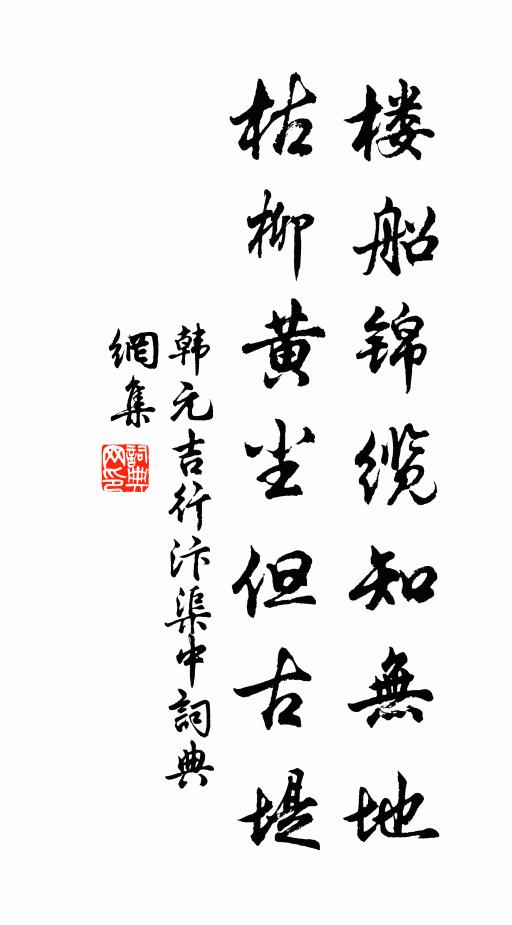 楼船锦缆知無地
枯柳黄尘但古堤
韩元吉行汴渠中詞典
網集
詞典
网印